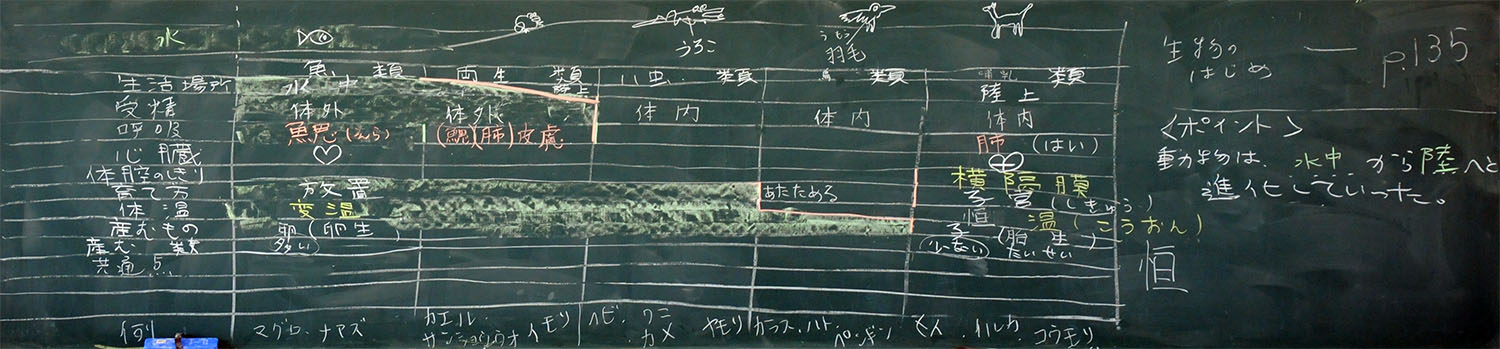 水
うろこ
うもう
羽毛
魚類 両生類 ハ虫類 鳥類 哺乳類
生活場所 水中 陸上 陸上
受精 体外 体外 体内 体内 体内
呼吸 魚児(えら) (鰓)(肺)皮膚 肺(はい)
心臓
体腔のしきり 横隔膜
育て方 放置 あたためる 子宮(しきゅう)
体温 変温 恒温(こうおん)
産むもの 卵(卵生) 子(胎生)
たいせい
産む数 多い 少ない
共通点
例 マグロ・ナマズ カエル・サンショウウオ イモリ ヘビ・ワニ・カメ ヤモリ カラス・ハト・ペンギン イルカ・コウモリ
生物の
はじめ
p.135
<ポイント>
動物は、水中から陸へと
進化していった。
恒